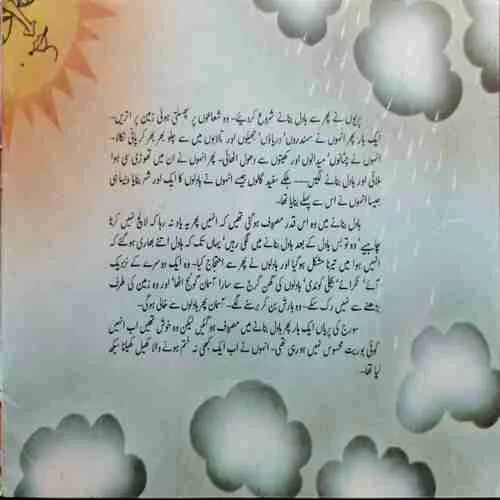 پریوں نے پھر سے بادل بنانے شروع کردیئے۔ وہ شعاعوں پر پھسلتی ہوئی زمین پر اتریں۔
ایک بار پھر انہوں نے سمندروں‘ دریاؤں‘ جھیلوں اور تالابوں میں سے چلو بھر بھر کر پانی نکالا۔
انہوں نے چٹانوں‘ میدانوں اور کھیتوں سے دھول اٹھائی۔ پھر انہوں نے ان میں تھوڑی سی ہوا
ملائی اور بادل بنانے لگیں۔۔۔۔۔ ہلکے سفید گالوں جیسے انہوں نے بادلوں کا ایک اور شہر بنایا ویسا ہی
جیسا انہوں نے اس سے پہلے بنایا تھا۔
بادل بنانے میں وہ اس قدر مصروف ہوگئی تھیں کہ انہیں پھر یہ یاد نہ رہا کہ لالچ نہیں کرنا
چاہیے‘ وہ تو بس بادل کے بعد بادل بنانے میں لگی رہیں‘ یہاں تک کہ بادل اتنے بھاری ہوگئے کہ
انہیں ہوا میں تیرنا مشکل ہوگیا اور بادلوں نے پھر سے احتجاج کیا۔ وہ ایک دوسرے کے نزدیک
آئے‘ ٹکرائے‘ بجلی کوندی‘ بادلوں کی گھن گرج سے سارا آسمان گونج اٹھا‘ اور وہ زمین کی طرف
بڑھنے سے نہیں رک سکے۔ وہ بارش بن کر برسنے لگے۔ آسمان پھر بادلوں سے خالی ہوگیا۔
سورج کی پریاں ایک بار پھر بادل بنانے میں مصروف ہوگئیں لیکن وہ خوش تھیں اب انہیں
کوئی بوریت محسوس نہیں ہورہی تھی۔ انہوں نے اب ایک کبھی نہ ختم ہونے والا کھیل کھیلنا سیکھ
لیا تھا۔